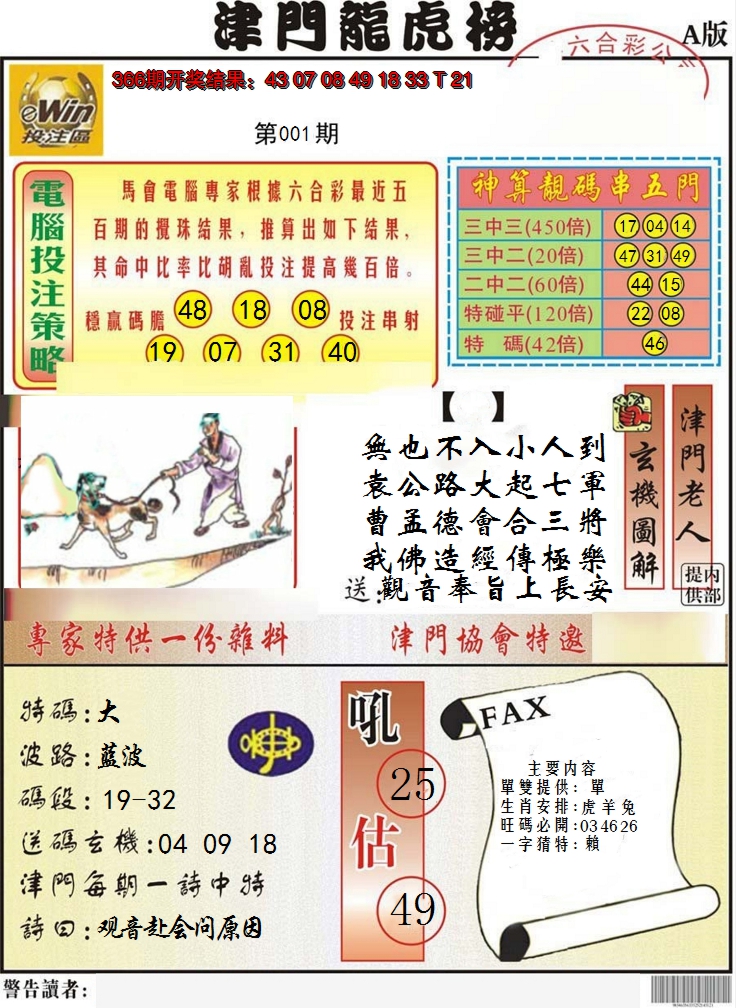 津門龍虎榜
A版
六合彩公
366期开奖结果：43 07 08 49 18 33 T 21
eWin
投注區
第001期
電腦投注策略
馬會電腦專家根據六合彩最近五
百期的攪珠结果，推算出如下结果，
其命中比率比胡亂投注提高幾百倍。
穩贏碼膽 48 18 08 投注串射
19 07 31 40
神算靚碼串五門
三中三(450倍) 17 04 14
三中二(20倍) 47 31 49
二中二(60倍) 44 15
特碰平(120倍) 22 08
特 碼(42倍) 46
【 】
無也不入小人到
袁公路大起七軍
曹孟德會合三將
我佛造經傳極樂
送:觀音奉旨上長安
玄機圖解
津門老人
内部提供
專家特供一份雜料
津門協會特邀
特碼:大
波路:藍波
碼段:19-32
送碼玄機:04 09 18
津門每期一詩中特
詩曰:观音赴会问原因
吼
25
估
49
FAX
主要内容
單雙提供: 單
生肖安排:虎羊兔
旺碼必開:034626
一字猜特:賴
警告讀者: